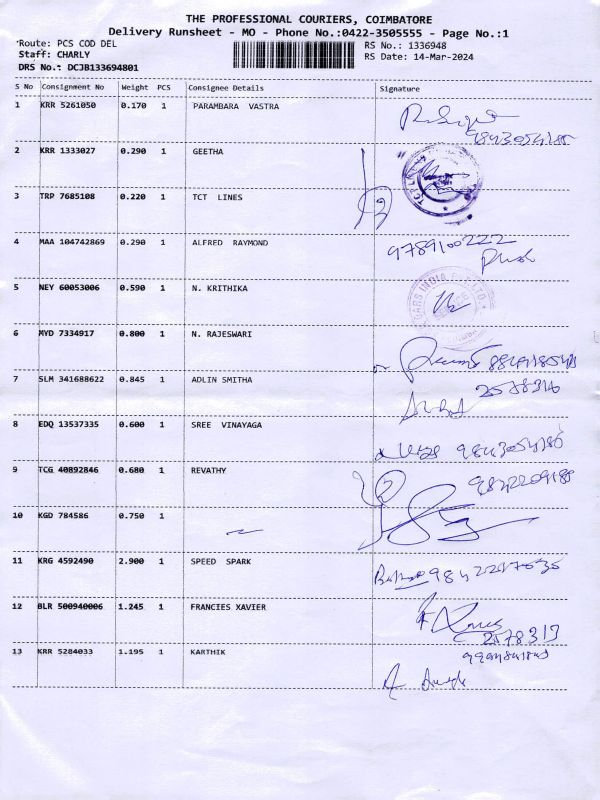 THE PROFESSIONAL COURIERS, COIMBATORE
Delivery Runsheet - MO - Phone No.:0422-3505555 - Page No.:1
Route: PCS COD DEL RS No.: 1336948
Staff: CHARLY RS Date: 14-Mar-2024
DRS No.: DCJB133694801
S No Consignment No Weight PCS Consignee Details Signature
1 KRR 5261050 0.170 1 PARAMBARA VASTRA
2 KRR 1333027 0.290 1 GEETHA
3 TRP 7685108 0.220 1 TCT LINES
4 MAA 104742869 0.290 1 ALFRED RAYMOND 9789100222
5 NEY 60053006 0.590 1 N. KRITHIKA
6 MYD 7334917 0.800 1 N. RAJESWARI
7 SLM 341688622 0.845 1 ADLIN SMITHA
8 EDQ 13537335 0.600 1 SREE VINAYAGA
9 TCG 40892846 0.680 1 REVATHY
10 KGD 784586 0.750 1
11 KRG 4592490 2.900 1 SPEED SPARK
12 BLR 500940006 1.245 1 FRANCIES XAVIER
13 KRR 5284033 1.195 1 KARTHIK